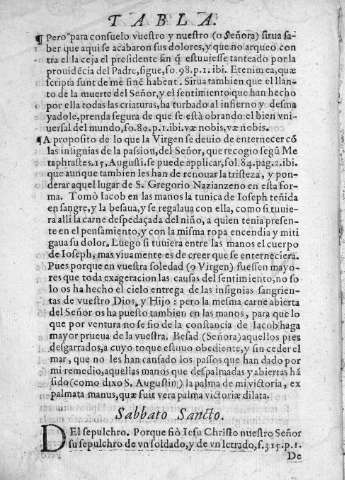 TABLA.
¶ Pero para consuelo vuestro y nuestro (o Señora) sirua sa
ber que aqui se acabaron sus dolores, y que no arqueo con
tra el la ceja el presidente sin q̃ estuuiesse tanteado por la
prouidẽcia del Padre, sigue, fo. 98. p. 1. ibi. Etenim ea, quæ
scripta sunt de me finẽ habent. Sirua tambien que el llan-
to de la muerte del Señor, y el sentimiento que han hecho
por ella todas las criaturas, ha turbado al infierno y desma
yadole, prenda segura de que se està obrando el bien vni-
uersal del mundo, fo. 80. p. 1. ibi. væ nobis, væ nobis.
¶ A proposito de lo que la Virgen se deuio de enternecer cõ
las insignias de la passiõ, del Señor, que recogio segũ Me
taphrastes. 15, Augusti. se puede applicar, fol. 84. pag. 2. ibi.
que aunque tambien les han de renouar la tristeza, y pon-
derar aquel lugar de S. Gregorio Nazianzeno en esta for-
ma. Tomò Iacob en las manos la tunica de Ioseph teñida
en sangre, y la besaua, se regalaua con ella, como si tuuie-
ra alli la carne despedaçada del niño, a quien tenia presen-
te en el pensamiento, y con la misma ropa encendia y miti
gaua su dolor. Luego si tuuiera entre las manos el cuerpo
de Ioseph, mas viuamente es de creer que se enterneciera.
Pues porque en vuestra soledad (o Virgen) fuessen mayo-
res que toda exageracion las causas del sentimiento, no so
lo os ha hecho el cielo entrega de las insignias sangrien-
tas de vuestro Dios, y Hijo: pero la mesma carne abierta
del Señor os ha puesto tambien en las manos, para que lo
que por ventura no se fio de la constancia de Iacob haga
mayor prueua de la vuestra. Besad (Señora) aquellos pies
desgarrados, a cuyo toque estuuo obediente, y sin ceder el
mar, que no les han causado los passos que han dado por
mi remedio, aquellas manos que despalmadas y abiertas hã
sido (como dixo S. Augustin) la palma de mi victoria, ex
palmata manus, quæ fuit vera palma victoriæ dilata.
Sabbato Sancto.
DEl sepulchro. Porque fiò Iesu Christo nuestro Señor
su sepulchro de vn soldado, y de vn letrado, f. 315. p. 1.
De